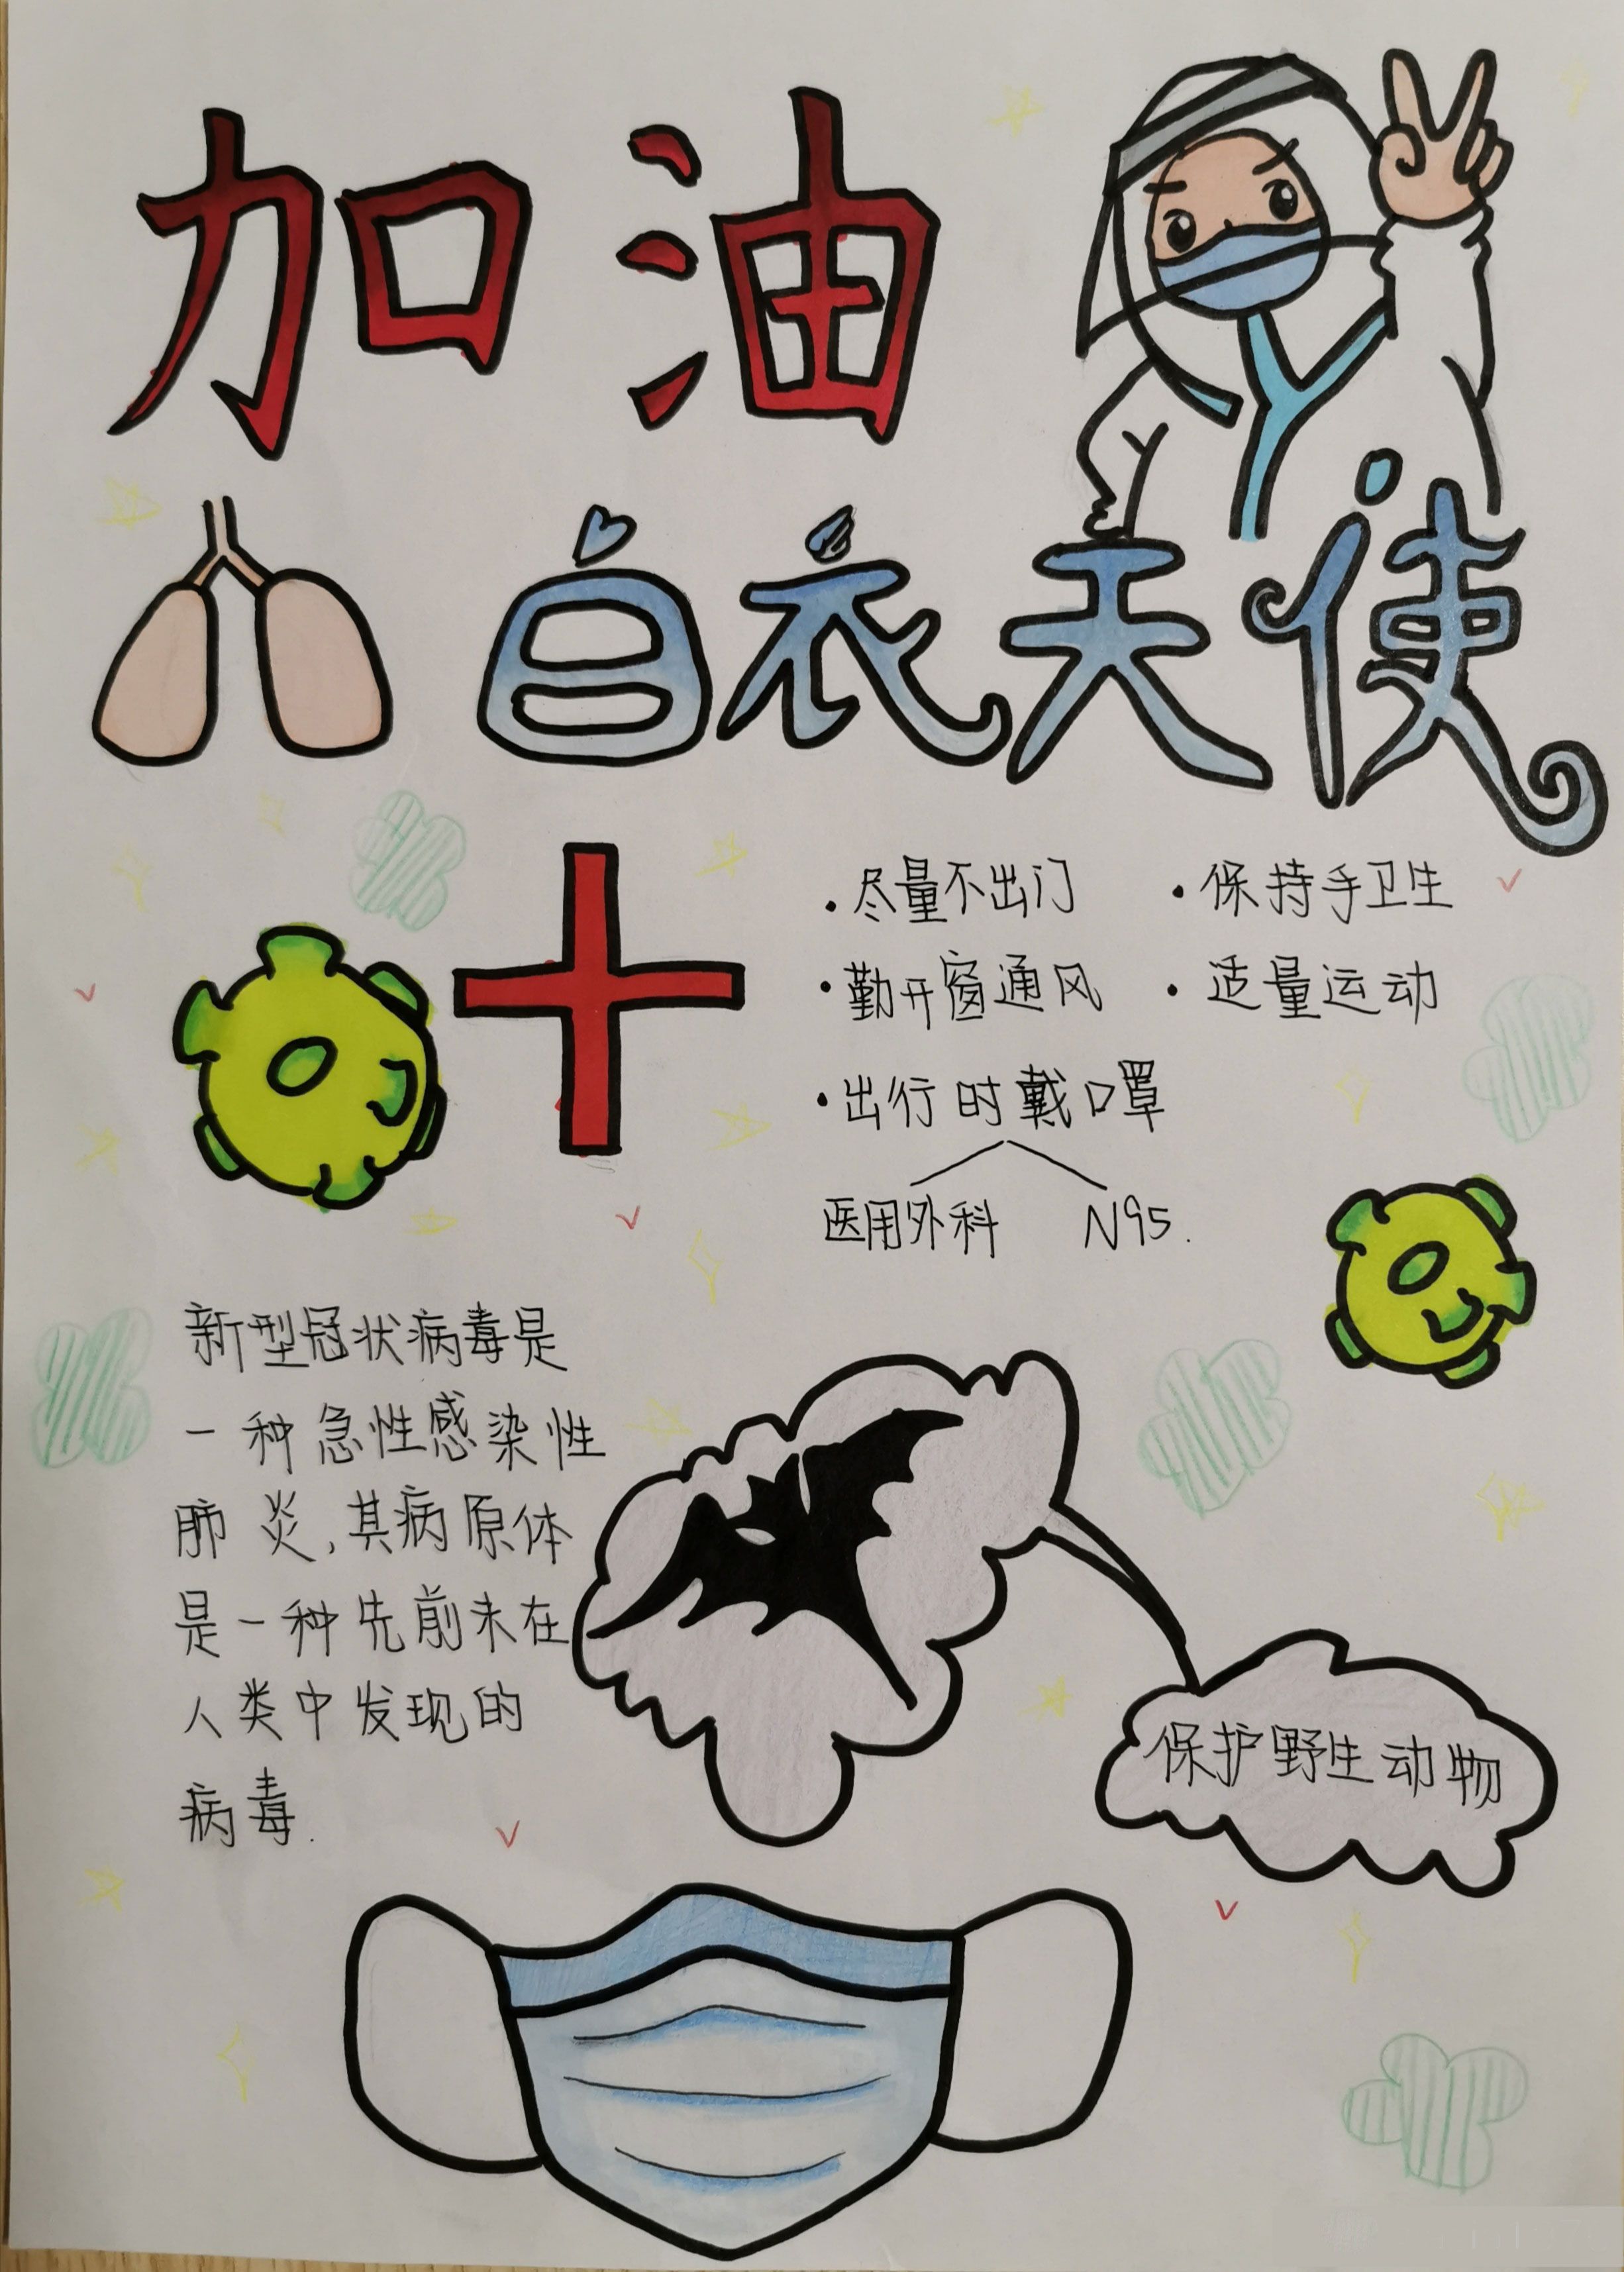 加油
白衣天使
·尽量不出门 ·保持手卫生
·勤开窗通风 ·适量运动
·出行时戴口罩
医用外科 N95.
新型冠状病毒是
一种急性感染性
肺炎,其病原体
是一种先前未在
人类中发现的
病毒.
保护野生动物